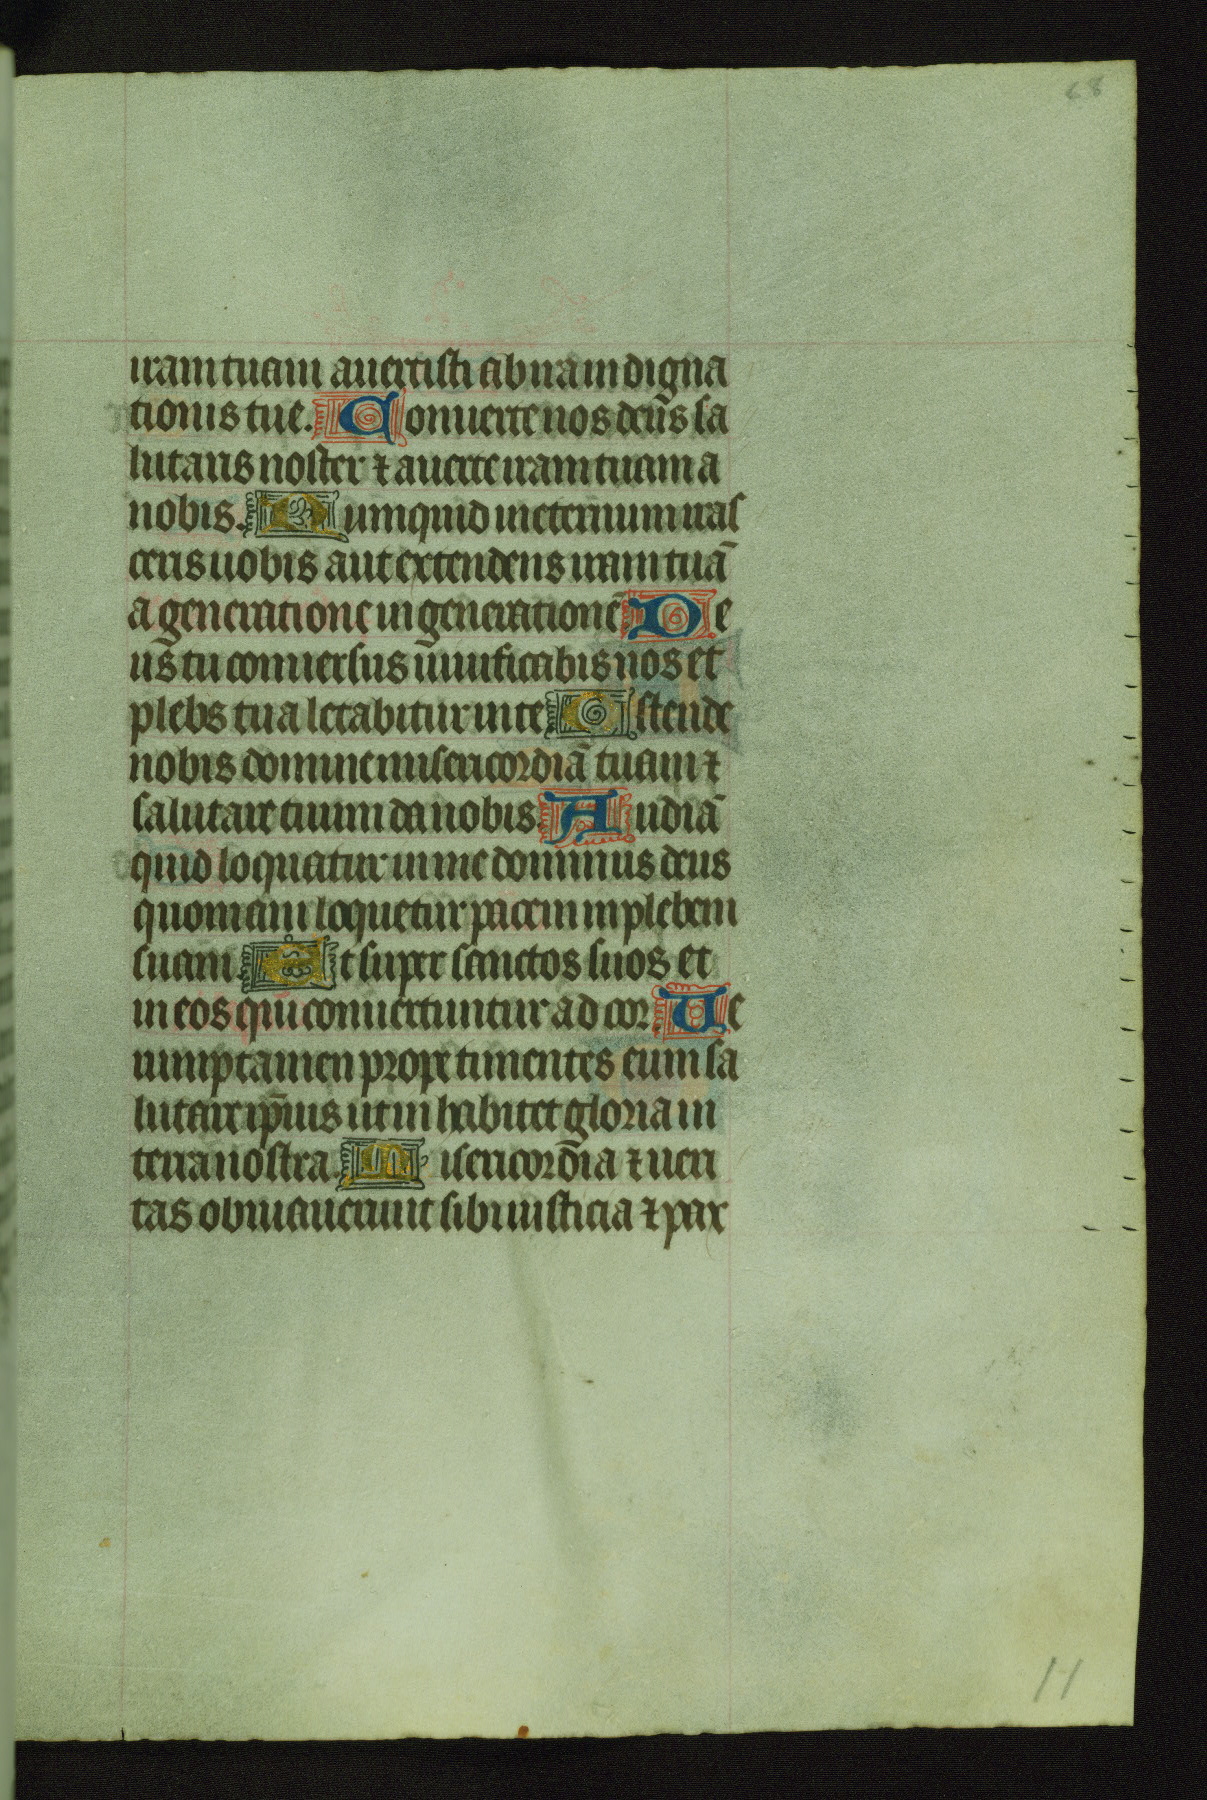 68
iram tuam auertisti ab ira indigna
tionis tue. Conuerte nos deus sa
lutaris noster ⁊ auerte iram tuam a
nobis. Numquid in eternum iras
ceris nobis aut extendens iram tuā
a generatione in generationē. De
us tu conuersus uiuificabis nos et
plebs tua letabitur in te Ostende
nobis domine misericordiā tuam ⁊
salutare tuum da nobis. Audiā
quid loquatur in me dominus deus
quoniam loquetur pacem in plebem
suam. Et super sanctos suos et
in eos qui conuertuntur ad cor. Ue
rumptamen prope timentes eum sa
lutare ip̄ius ut inhabitet gloria in
terra nostra. Misericordia ⁊ ueri
tas obuiauerunt sibi iusticia ⁊ pax